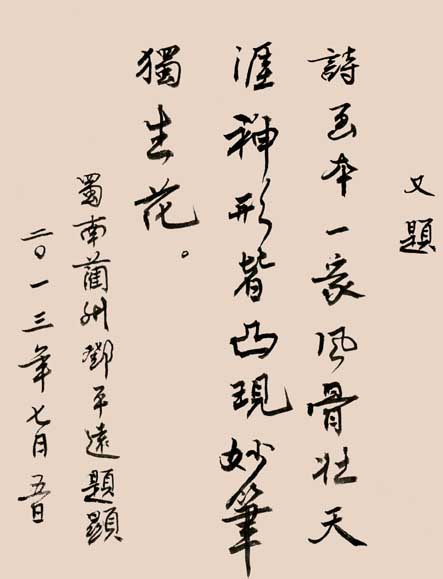 又題
詩画本一家风骨壮天
涯神形皆凸現妙筆
獨生花。
蜀南藺州鄧平遠題顯
二〇一三年七月五日